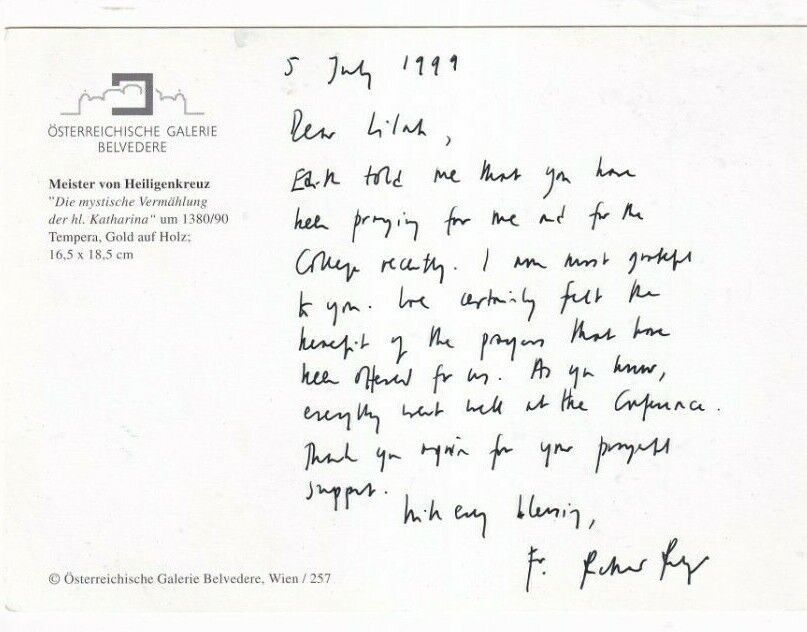 ÖSTERREICHISCHE GALERIE
BELVEDERE
Meister von Heiligenkreuz
"Die mystische Vermählung
der hl. Katharina" um 1380/90
Tempera, Gold auf Holz;
16,5 x 18,5 cm
5 July 1999
Dear Lilah,
told me that you have
been praying for me and for the
College recently. I am most grateful
to you. We certainly felt the
benefit of the prayers that have
been offered for us. As you know,
everything went well at the Conference.
Thank you again for your prayerful
support.
With every blessing,
Fr.
© Österreichische Galerie Belvedere, Wien / 257